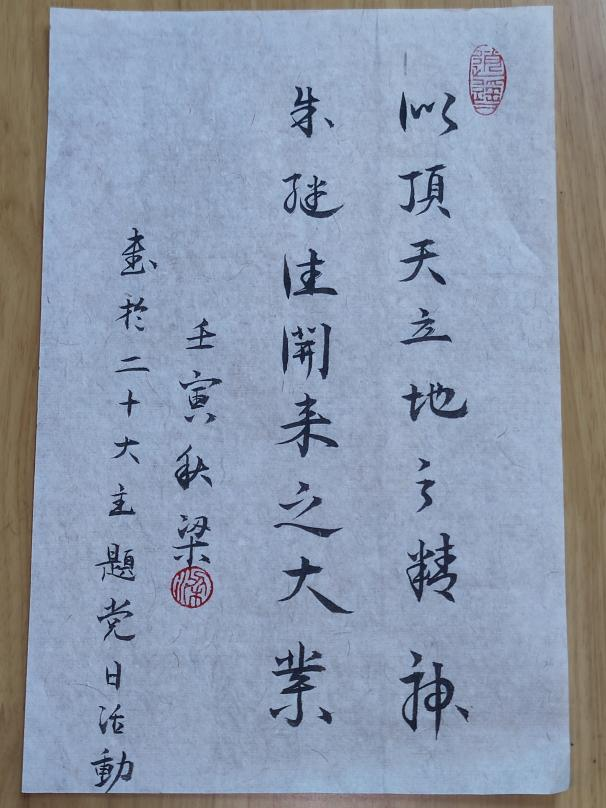 以頂天立地之精神
成继往開来之大業
壬寅秋梁
書於二十大主題党日活動